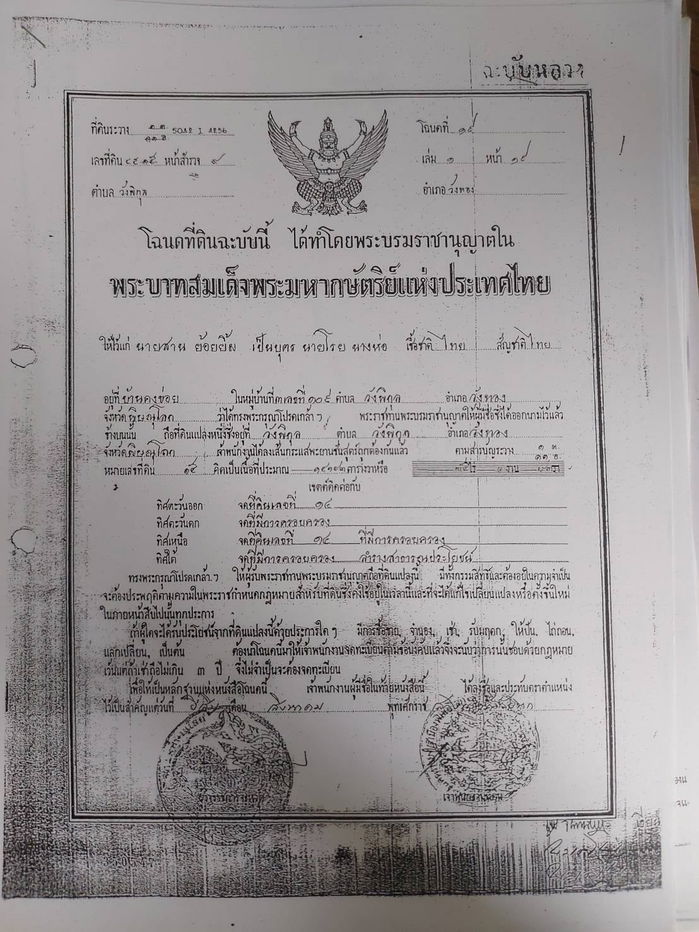 ฉะบับหลวง
ที่ดินระวาง 5042 I
โฉนดที่ ๑๙
เลขที่ดิน หน้าสำรวจ ๙
เล่ม ๑ หน้า ๑๙
ตำบล วังพิกุล
อำเภอ วังทอง
โฉนดที่ดินฉะบับนี้ ได้ทำโดยพระบรมราชานุญาตใน
พระบาทสมเด็จพระมหากษัตริย์แห่งประเทศไทย
ให้ไว้แก่ นายสาน ย้อยยิ้ม เป็นบุตร นายโรย นางห่อ เชื้อชาติ ไทย สัญชาติ ไทย
อยู่ที่ บ้านดงข่อย ในหมู่บ้านที่ เลขที่ ๑๐๙ ตำบล วังพิกุล อำเภอ วังทอง
จังหวัด พิษณุโลก ว่าได้ทรงพระกรุณาโปรดเกล้า ฯ พระราชทานพระบรมราชานุญาตให้ผู้มีชื่อซึ่งได้ออกนามไว้แล้ว
ข้างบนนั้น ถือที่ดินแปลงหนึ่งซึ่งอยู่ที่ วังพิกุล ตำบล วังพิกุล อำเภอ วังทอง
จังหวัด พิษณุโลก เจ้าพนักงานได้ลงเส้นกระแสพะยานชื่นสูตร์ถูกต้องกันแล้ว ตามสำรูประวาง
หมายเลขที่ดิน คิดเป็นเนื้อที่ประมาณ ตารางวาหรือ ไร่ งาน วา
เขตต์ติดต่อกับ
ทิศตะวันออก จดที่ดินเลขที่ ๑๔
ทิศตะวันตก จดที่มีการครอบครอง
ทิศเหนือ จดที่ดินเลขที่ ๑๔ ที่มีการครอบครอง
ทิศใต้ จดที่มีการครอบครอง ลำรางสาธารณประโยชน์
ทรงพระกรุณาโปรดเกล้า ฯ ให้ผู้รับพระราชทานพระบรมราชานุญาตถือที่ดินแปลงนี้ มีทั้งกรรมสิทธิ์และต้องอยู่ในความจำเป็น
จะต้องประพฤติตามความในพระราชกำหนดกฎหมายสำหรับที่ดินซึ่งคงใช้อยู่ในเวลานี้และที่จะได้แก้ไขเปลี่ยนแปลงหรือตั้งขึ้นใหม่
ในภายหน้าสืบไปนั้นทุกประการ
ถ้าผู้ใดจะได้รับประโยชน์จากที่ดินแปลงนี้ด้วยประการใด ๆ มีการซื้อขาย, จำนอง, เช่า, รับมฤดก, ให้ปัน, ไถ่ถอน,
แลกเปลี่ยน, เป็นต้น ต้องนำโฉนดนี้มาให้เจ้าพนักงานจดทะเบียนตามข้อบังคับแล้วจึงจะนับว่าการนั้นชอบด้วยกฎหมาย
เว้นแต่ถ้าเช่าถือไม่เกิน ๓ ปี จึงไม่จำเป็นจะต้องจดทะเบียน
เพื่อให้เป็นหลักฐานแห่งหนังสือโฉนดนี้ เจ้าพนักงานผู้มีชื่อในท้ายหนังสือนี้ ได้ลงชื่อและประทับตราตำแหน่ง
ไว้เป็นสำคัญแต่วันที่ เดือน สิงหาคม พุทธศักราช